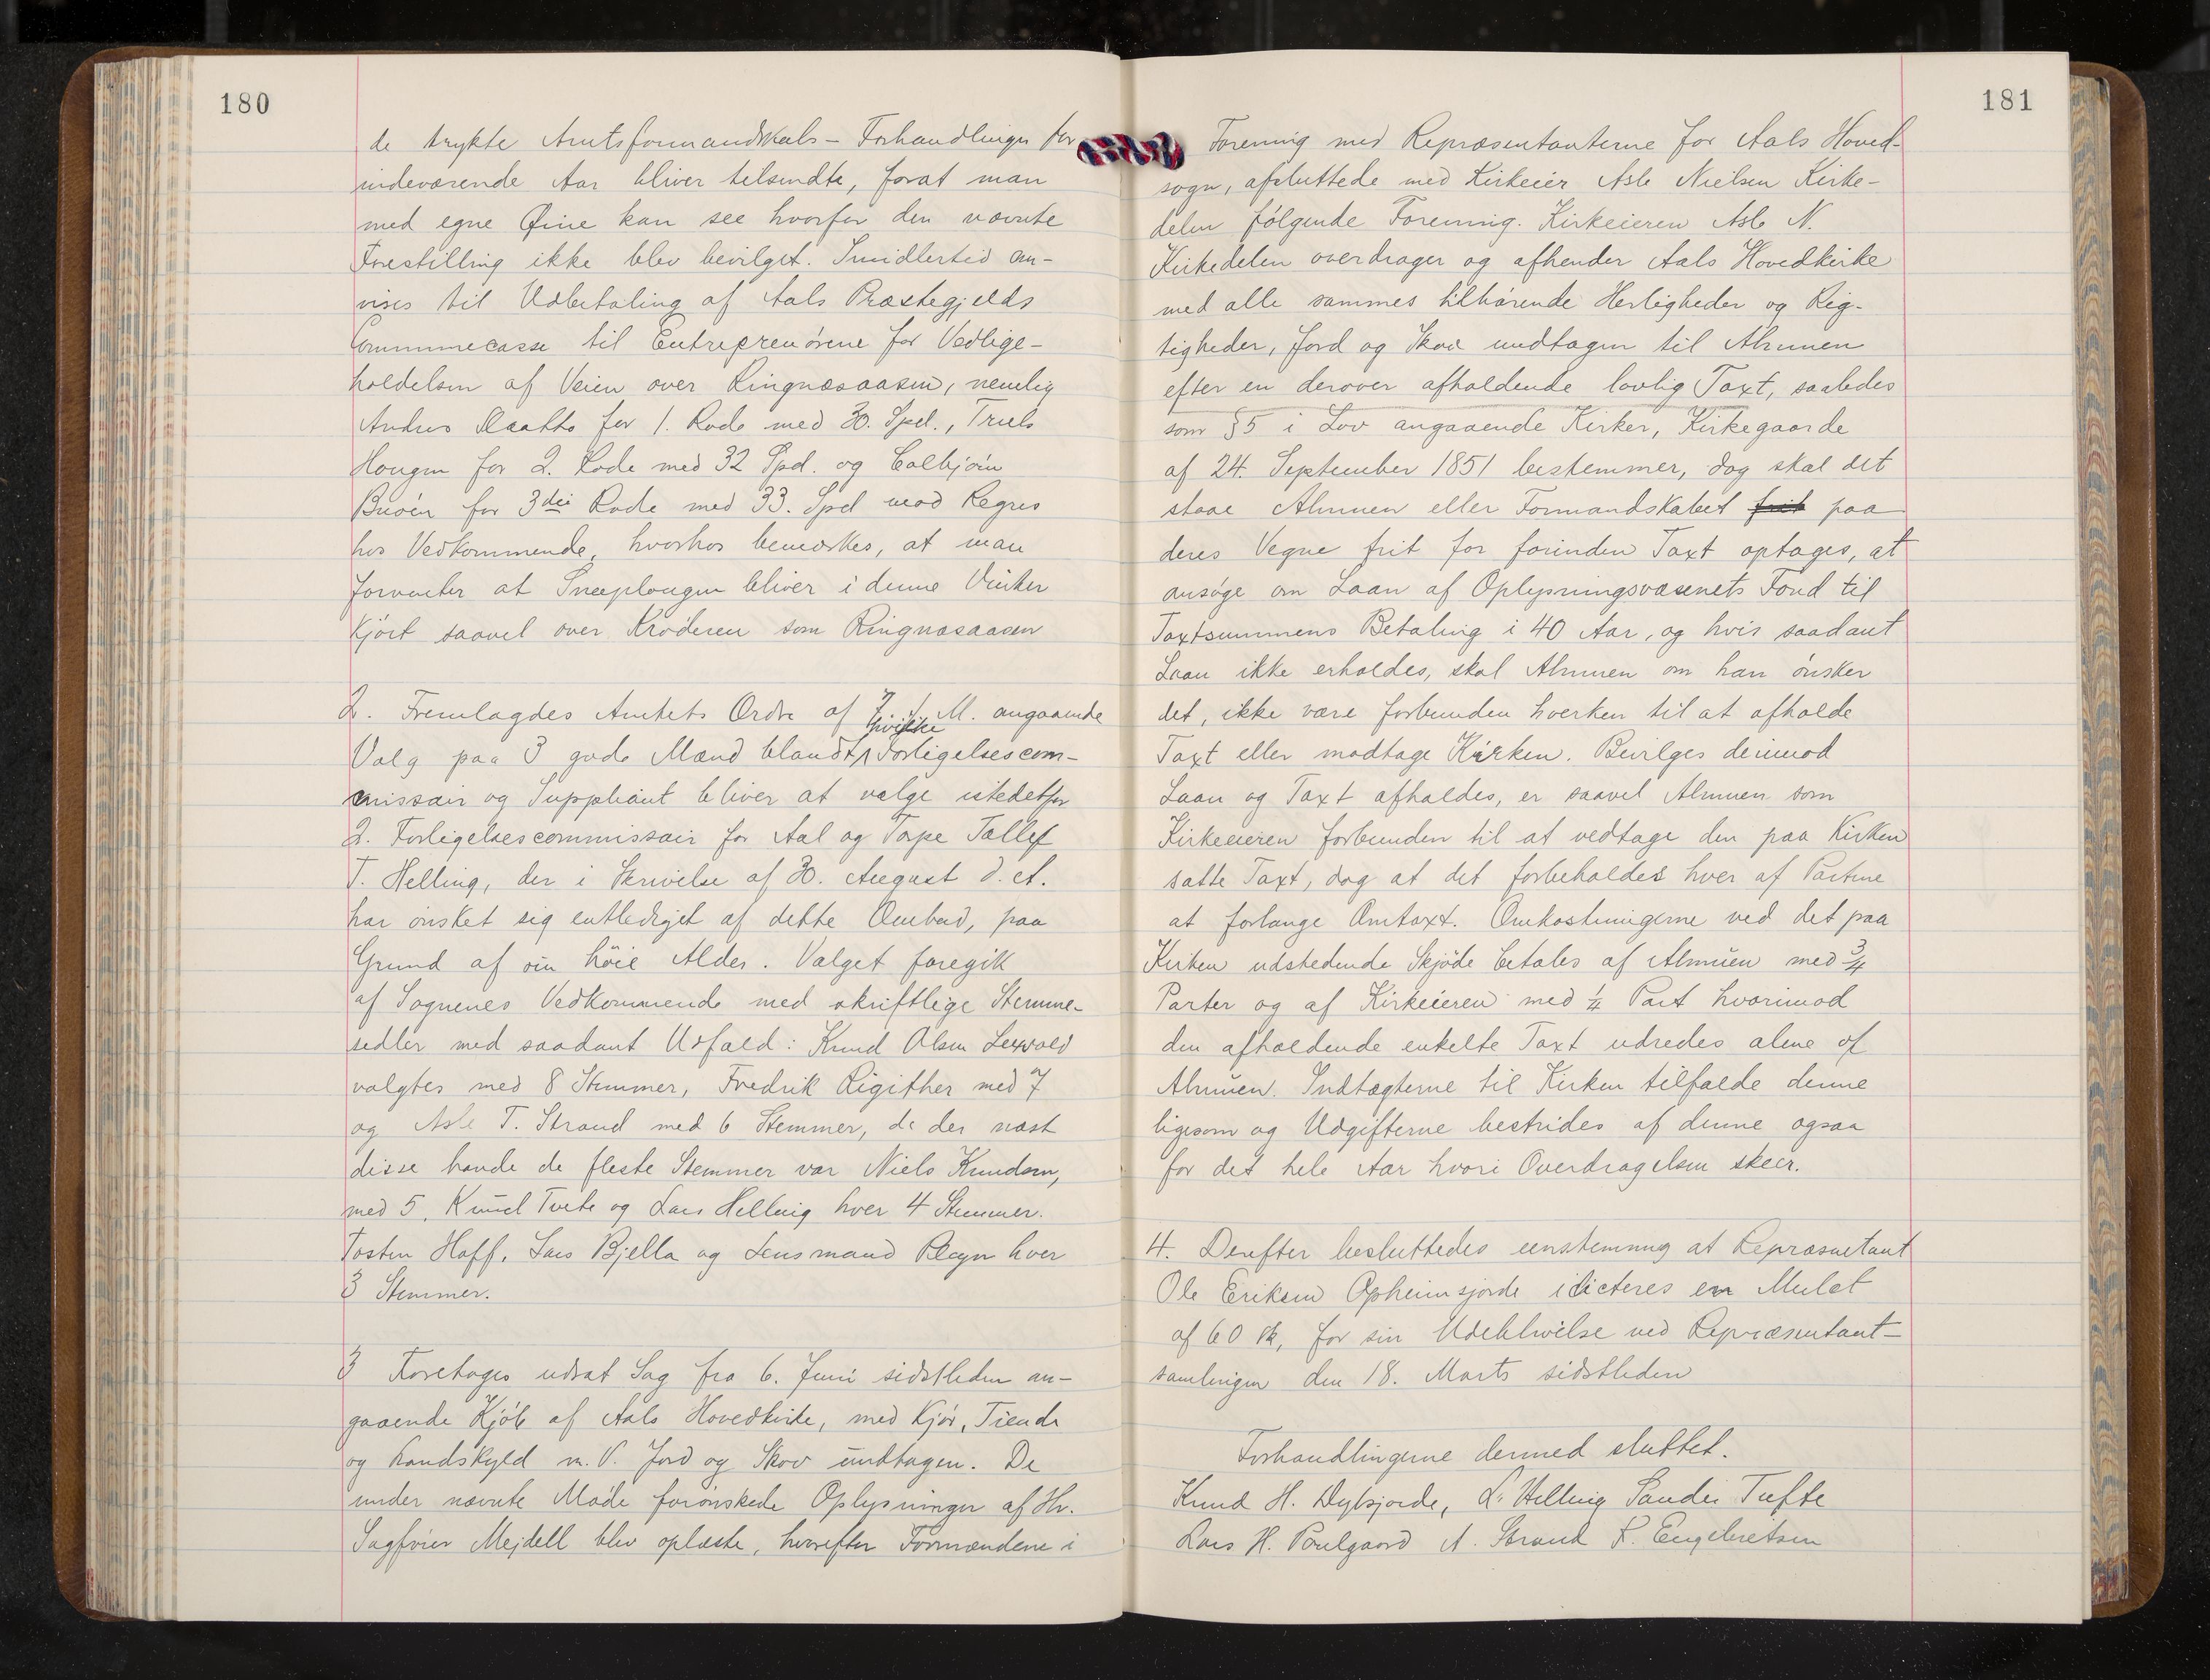 180
de trykte Amtsformandskabs- Forhandlinger for
indeværende Aar bliver tilsendte, forat man
med egne Øine kan see hvorfor den nævnte
Forestilling ikke blev bevilget. Imidlertid an-
vises til Udbetaling af Aals Præstegjelds
Communecasse til Entreprenørene for Vedlige-
holdelsen af Veien over Ringnæsaasen, nemlig
Andres for 1. Rode med 30. Spd., Truls
Hougen for 2. Rode med 32 Spd. og Colbjørn
Buøen for 3die Rode med 33. Spd mod Regres
hos Vedkommende, hvorhos bemærkes, at man
forventer at Sneeplougen bliver i denne Vinter
kjørt saavel over Krøderen som Ringnæsaasen
2. Fremlagdes Amtets Ordre af 7 f. M. angaaende
Valg paa 3 gode Mænd blandt hvilke Forligelsescom-
missair og Suppleant bliver at vælge istedetfor
2. Forligelsescommissair for Aal og Torpe Tollef
T. Helling, der i Skrivelse af 30. August d. A.
har ønsket sig entlediget af dette Ombud, paa
Grund af sin høie Alder. Valget foregik
af Sognenes Vedkommende med skriftlige Stemme-
sedler med saadant Udfald: Knud Olsen Lexvold
valgtes med 8 Stemmer, Fredrik Rigither med 7
og Asle T. Strand med 6 Stemmer, de der næst
disse havde de fleste Stemmer var Niels Knudsen,
med 5, Knud Tveto og Lars Helling hver 4 Stemmer.
Tosten Hoff, Lars Bjella og Lensmand Pleyn hver
3 Stemmer.
3 Foretoges udsat Sag fra 6. Juni sidstleden an-
gaaende Kjøb af Aals Hovedkirke, med Kjør, Tiende
og Landskyld m. V. Jord og Skov undtagen. De
under nævnte Møde forønskede Oplysninger af Hr.
Sagfører Mejdell blev oplæste, hvorefter Formændene i
181
Forening med Repræsentanterne for Aals Hoved-
sogn, afsluttede med Kirkeier Asle Nielsen Kirke-
delen følgende Forening. Kirkeieren Asle N.
Kirkedelen overdrager og afhender Aals Hovedkirke
med alle sammes tilhørende Herligheder og Rig-
tigheder, Jord og Skov undtagen til Almuen
efter en derover afholdende lovlig Taxt, saaledes
som §5 i Lov angaaende Kirker, Kirkegaarde
af 24. September 1851 bestemmer, dog skal det
staae Almuen eller Formandskabet frit paa
deres Vegne frit for forinden Taxt optages, at
ansøge om Laan af Oplysningsvæsenets Fond til
Taxtsummens Betaling i 40 Aar, og hvis saadant
Laan ikke erholdes, skal Almuen om han ønsker
det, ikke være forbunden hverken til at afholde
Taxt eller modtage Kirken. Bevilges derimod
Laan og Taxt afholdes, er saavel Almuen som
Kirkeeieren forbunden til at vedtage den paa Kirken
satte Taxt, dog at det forbeholdes hver af Partene
at forlange Omtaxt. Omkostningerne ved det paa
Kirken udstedende Skjøde betales af Almuen med 3/4
Parter og af Kirkeieren med 1/4 Part hvorimod
den afholdende enkelte Taxt udredes alene af
Almuen. Indtægterne til Kirken tilfalde denne
ligesom og Udgifterne bestrides af denne ogsaa
for det hele Aar hvori Overdragelsen skeer.
4. Derefter besluttedes eenstemmig at Repræsentant
Ole Eriksen Opheimsjorde idicteres en Mulct
af 60 sk, for sin Udeblivelse ved Repræsentant-
samlingen den 18. Marts sidstleden
Forhandlingerne dermed sluttet.
Knud H. Dybsjorde, L. Helling Sander Tufte
Lars H. Poulgaard A. Strand K. Engebretsen